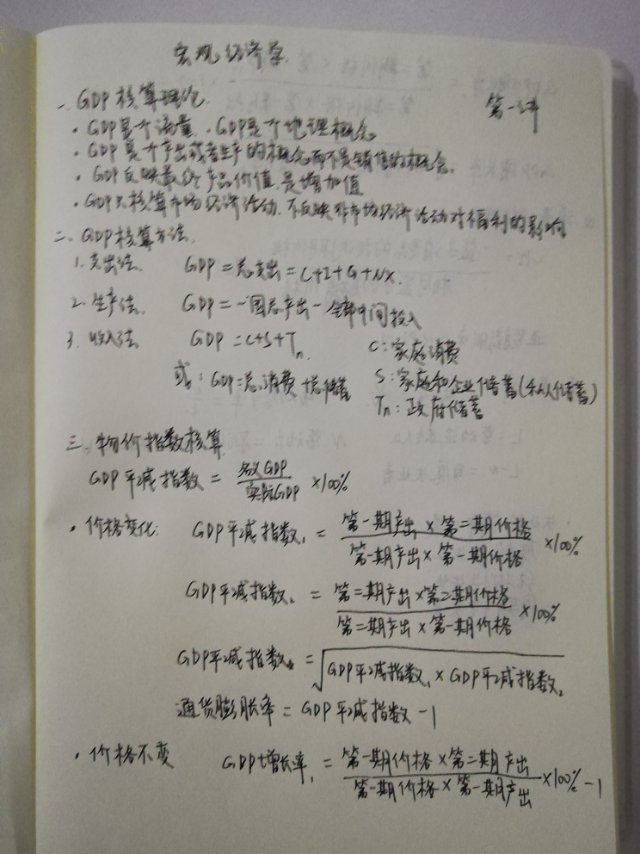 宏观经济学
第一讲
一. GDP核算理论
· GDP是个流量. GDP是个地理概念
· GDP是个产出或者生产的概念而不是销售的概念.
· GDP反映最终产品价值, 是增加值
· GDP只核算市场经济活动, 不反映非市场经济活动对福利的影响
二. GDP核算方法.
1. 支出法. GDP = 总支出 = C+I+G+NX.
2. 生产法. GDP = 一国总产出 - 全部中间投入
3. 收入法 GDP = C+S+Tn. C: 家庭消费
或: GDP = 总消费+总储蓄 S: 家庭和企业储蓄(私人储蓄)
Tn: 政府储蓄
三. 物价指数核算
GDP平减指数 = 名义GDP / 实际GDP ×100%
· 价格变化: GDP平减指数₁ = 第一期产出×第二期价格 / 第一期产出×第一期价格 ×100%
GDP平减指数₂ = 第二期产出×第二期价格 / 第二期产出×第一期价格 ×100%
GDP平减指数 = √GDP平减指数₁×GDP平减指数₂
通货膨胀率 = GDP平减指数 -1
· 价格不变 GDP增长率₁ = 第一期价格×第二期产出 / 第一期价格×第一期产出 ×100% -1